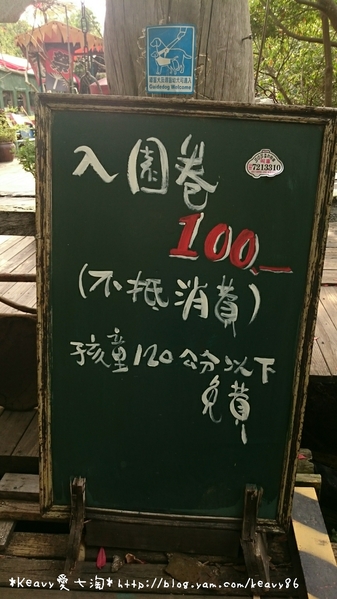 Guidedog Welcome
入園卷
7213310
100.—
(不抵消費)
孩童120公分以下
免費
*Keavy愛七淘*http://blog.yam.com/keavy86